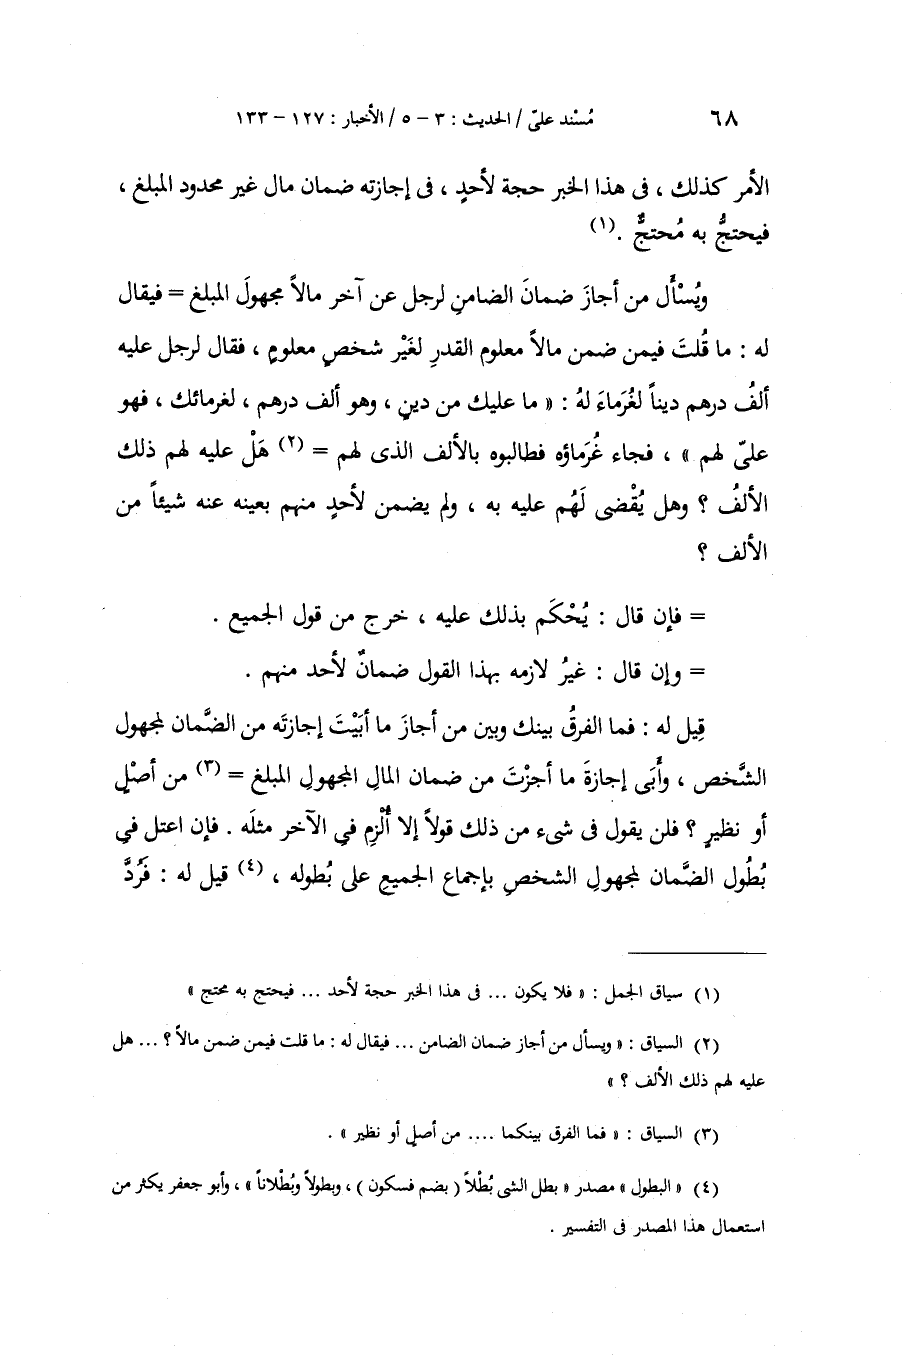 ٦٨ مُسْند علىّ / الحديث : ٣ – ٥ / الأخبار : ١٢٧ – ١٣٣
الأمر كذلك ، فى هذا الخبر حجة لأحدٍ ، فى إجازته ضمان مال غير محدود المبلغ ،
فيحتجُّ به مُحتجٌّ . (١)
ويُسْأَل من أجازَ ضمانَ الضامنِ لرجل عن آخر مالاً مجهولَ المبلغ = فيقال
له : ما قُلتَ فيمن ضمن مالاً معلوم القدرِ لغَيْر شخصٍ معلومٍ ، فقال لرجل عليه
ألفُ درهم ديناً لغُرَماءَ لهُ : « ما عليك من دينٍ ، وهو ألف درهم ، لغرمائك ، فهو
علىّ لهم » ، فجاء غُرَماؤه فطالبوه بالألف الذى لهم = (٢) هَلْ عليه لهم ذلك
الألفُ ؟ وهل يُقْضى لَهُم عليه به ، ولم يضمن لأحدٍ منهم بعينه عنه شيئاً من
الألف ؟
= فإن قال : يُحْكَم بذلك عليه ، خرج من قول الجميع .
= وإن قال : غيرُ لازمه بهذا القول ضمانٌ لأحد منهم .
قِيل له : فما الفرقُ بينك وبين من أجازَ ما أبَيْتَ إجازتَه من الضَّمان لمجهول
الشَّخص ، وأَبَى إجازةَ ما أجزْتَ من ضمان المالِ المجهولِ المبلغ = (٣) من أصْلٍ
أو نظيرٍ ؟ فلن يقول فى شىء من ذلك قولاً إلا أُلْزِم فى الآخر مثلَه . فإن اعتل فى
بُطُول الضَّمان لمجهولِ الشخصِ بإجماع الجميع على بُطوله ، (٤) قيل له : فَرُدَّ
(١) سياق الجمل : « فلا يكون ... فى هذا الخبر حجة لأحد ... فيحتج به محتج »
(٢) السياق : « ويسأل من أجاز ضمان الضامن ... فيقال له : ما قلت فيمن ضمن مالاً ؟ ... هل
عليه لهم ذلك الألف ؟ »
(٣) السياق : « فما الفرق بينكما .... من أصلٍ أو نظير » .
(٤) « البطول » مصدر « بطل الشى بُطْلاً ( بضم فسكون ) ، وبطولاً وبُطْلاناً » ، وأبو جعفر يكثر من
استعمال هذا المصدر فى التفسير .